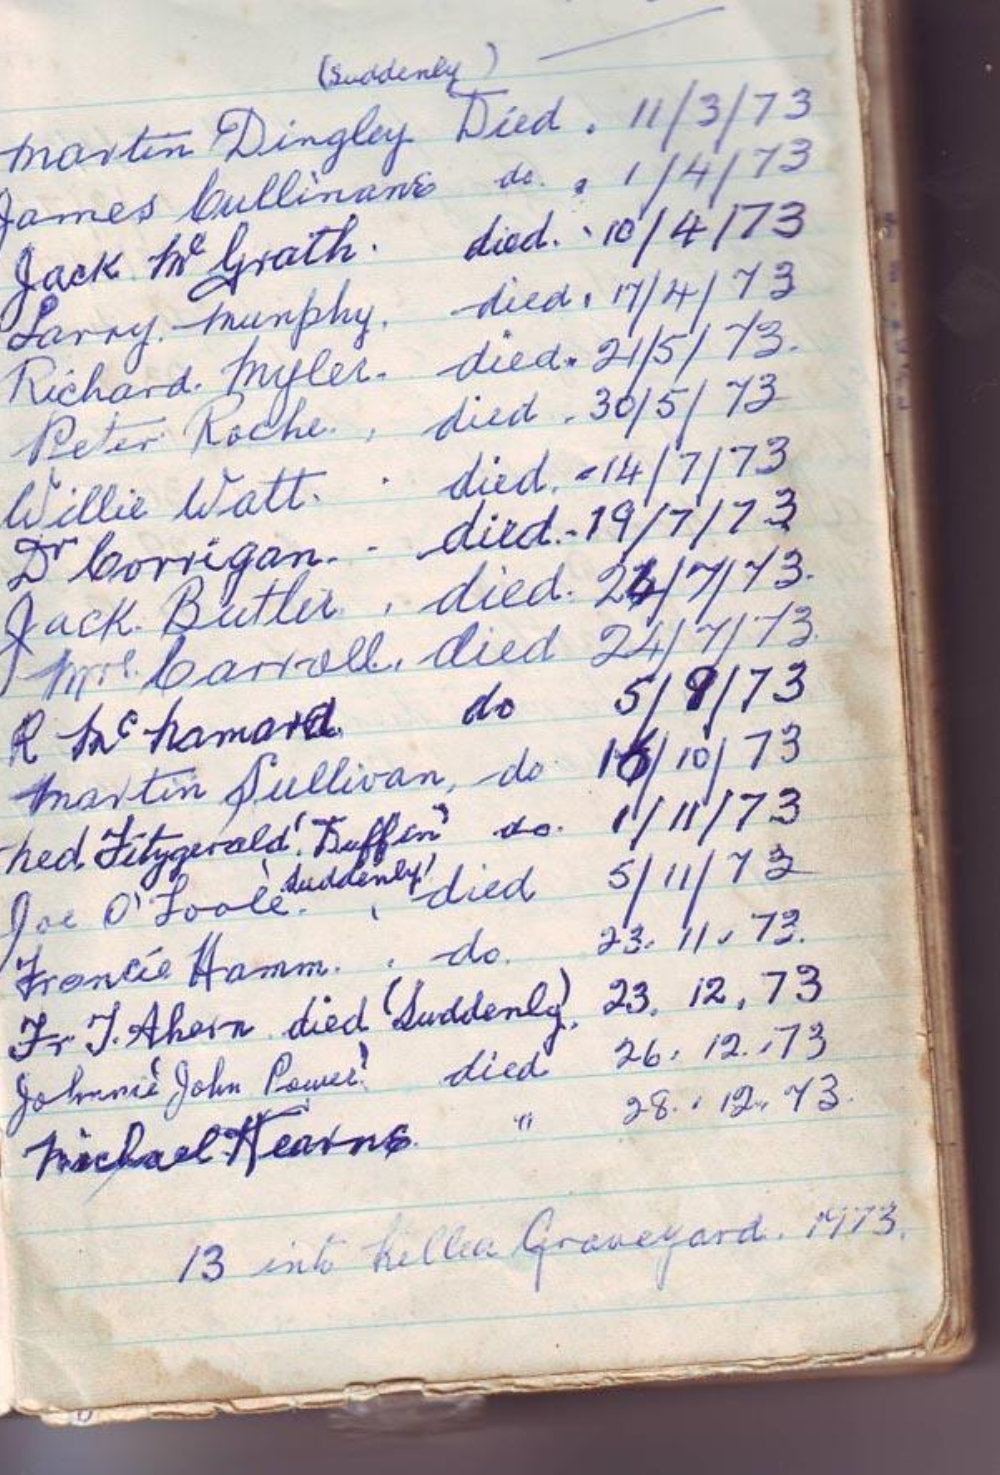 (Suddenly)
Martin Dingley Died. 11/3/73
James Cullinane do. 1/4/73
Jack Mc Grath. died. 10/4/73
Larry. Murphy. died. 17/4/73
Richard. Myler. died. 21/5/73.
Peter Roche. died. 30/5/73
Willie Watt. died. 14/7/73
Dr Corrigan. died. 19/7/73
Jack. Butler. died. /7/73.
Mrs. Carroll. died 24/7/73.
R Mc Namara. do 5/ /73
Martin Sullivan, do /10/73
Fitzgerald! "Buffin" do. 1/11/73
Suddenly!
Joe O'Toole. died 5/11/73
Francie Hamm. do. 23. 11. 73.
Fr T. Ahern died (Suddenly). 23. 12. 73
Johnnie John Power! died 26. 12. 73
Michael Kearns. " 28. 12. 73.
13 into Killea Graveyard. 1973.